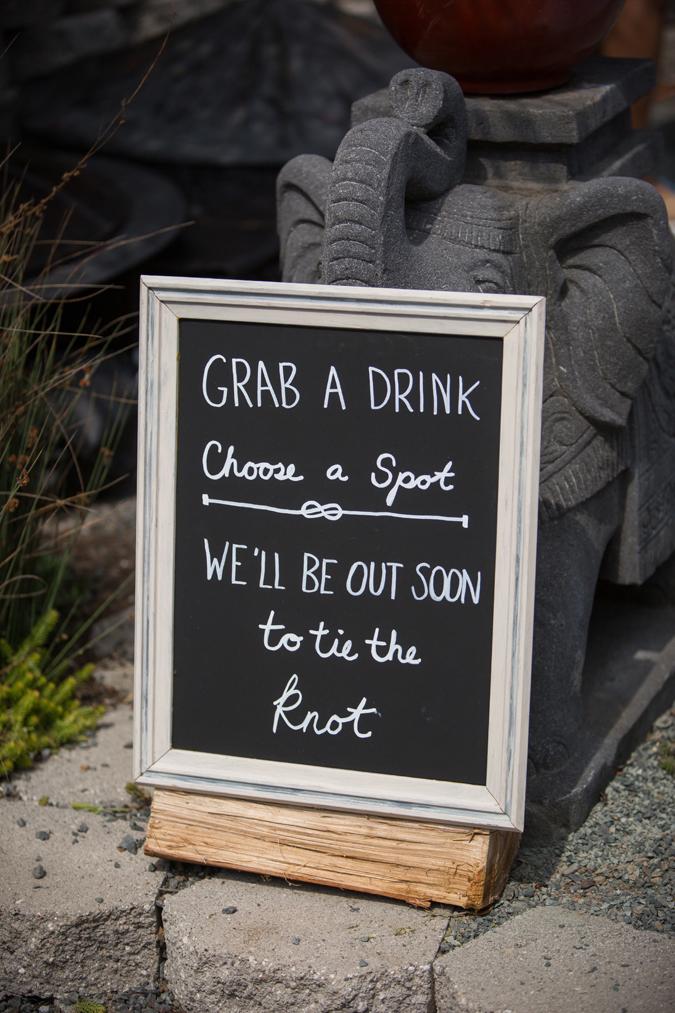 GRAB A DRINK
Choose a Spot
WE'LL BE OUT SOON
to tie the
Knot